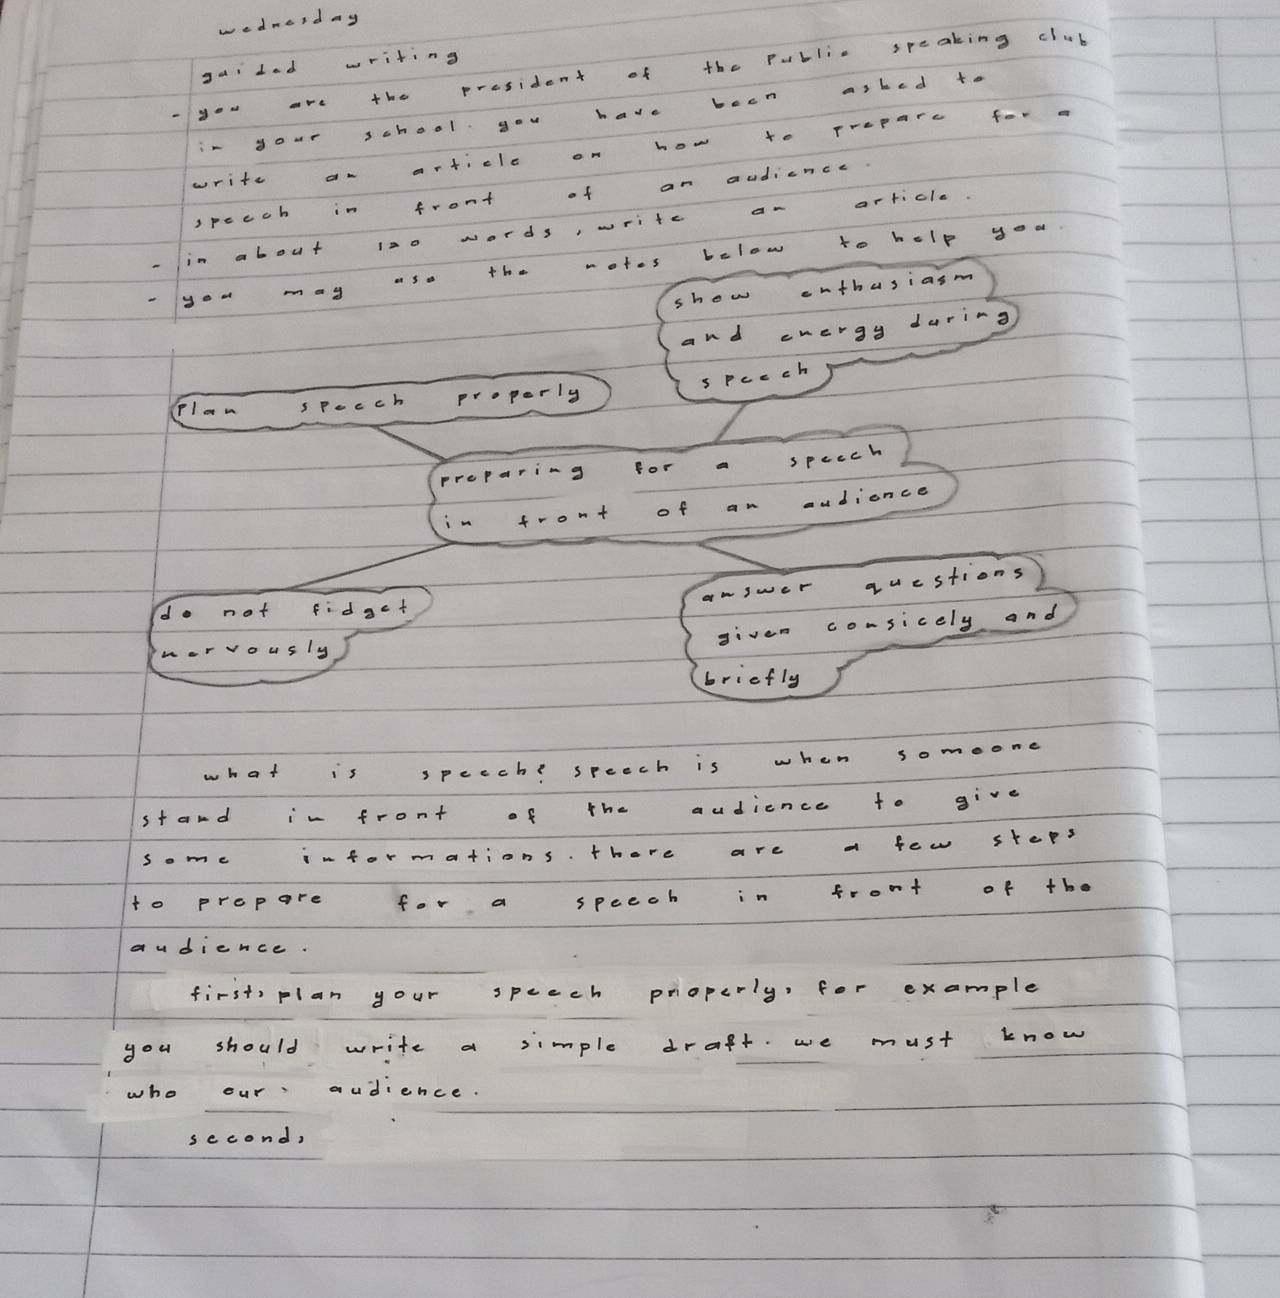 wednesday
guided writing
- you are the president of the public speaking club
in your school. you have been asked to
write an article on how to prepare for a
speech in front of an audience.
- in about 120 words, write an article.
- you may use the notes below to help you.
show enthusiasm
and energy during
speech
plan speech properly
preparing for a speech
in front of an audience
do not fidget
nervously
answer questions
given consicely and
briefly
what is speech? speech is when someone
stand in front of the audience to give
some informations. there are a few steps
to prepare for a speech in front of the
audience.
first, plan your speech properly, for example
you should write a simple draft. we must know
who our audience.
second,